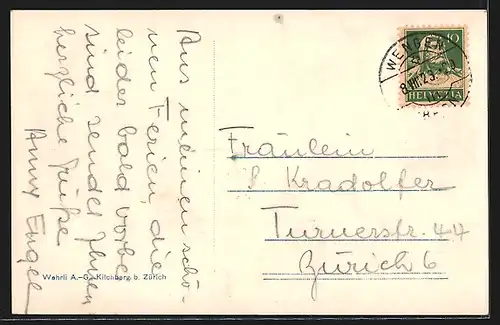 Aus meinen schö-
nen Ferien, die
leider bald vorbei
sind sendet Ihnen
herzliche Grüße
Anny Engel
Wehrli A.-G., Kilchberg b. Zürich
10
WENGEN
HELVETIA
Fräulein
S Kradolfer
Turnerstr. 44
Zürich 6